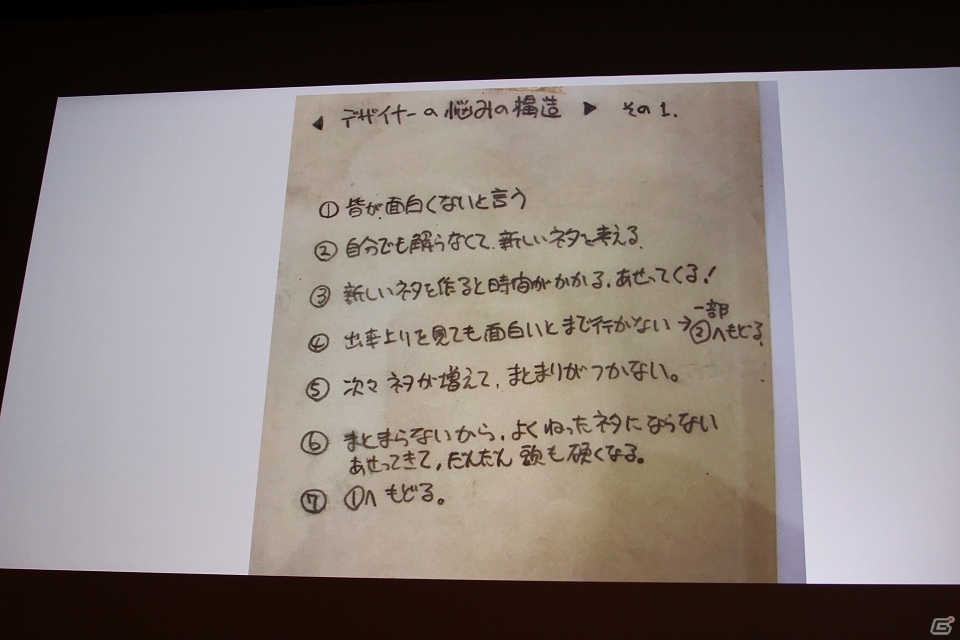 ◀ デザイナーの悩みの構造 ▶ その1.
① 皆が面白くないと言う
② 自分でも解らなくて、新しいネタを考える
③ 新しいネタを作ると時間がかかる、あせってくる!
④ 出来上りを見ても面白いとまで行かない→一部②へもどる
⑤ 次々ネタが増えて、まとまりがつかない。
⑥ まとまらないから、よくねったネタにならない
あせってきて、だんだん頭も硬くなる。
⑦ ①へもどる。